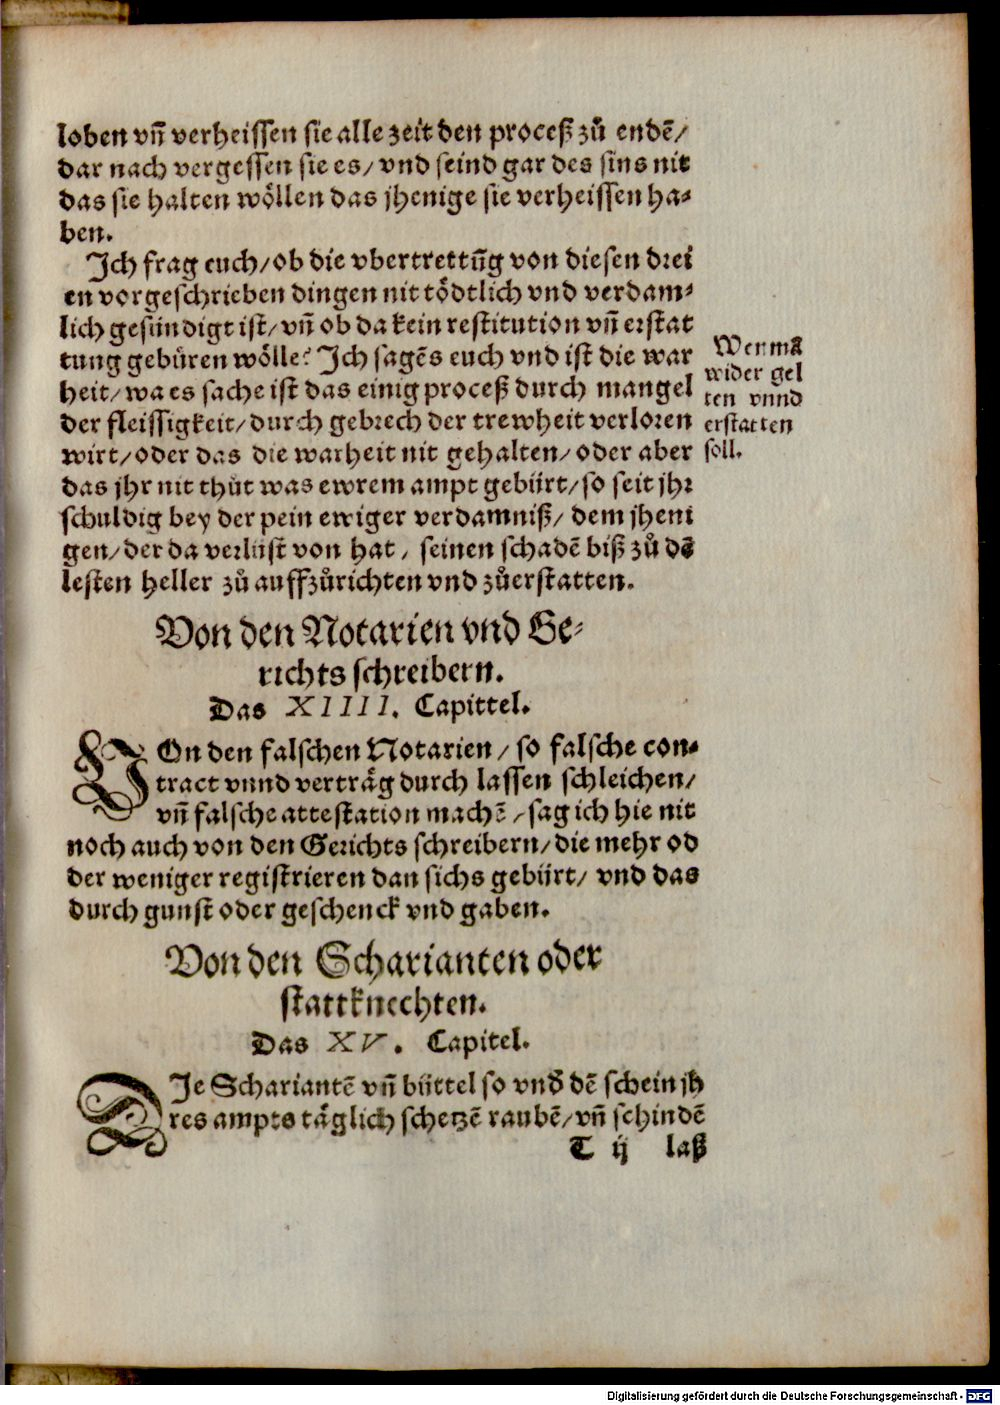 loben vñ verheissen sie alle zeit den proceß zů endē/
dar nach vergessen sie es/ vnd seind gar des sins nit
das sie halten wöllen das jhenige sie verheissen ha⸗
ben.
Jch frag euch/ ob die vbertrettūg von diesen drei
en vorgeschrieben dingen nit tödtlich vnd verdam⸗
lich gesündigt ist/ vñ ob da kein restitution vñ erstat
tung gebüren wölle? Jch sagēs euch vnd ist die war
heit/ wa es sache ist das einig proceß durch mangel
der fleissigkeit/ durch gebrech der trewheit verloren
wirt/ oder das die warheit nit gehalten/ oder aber
das jhr nit thůt was ewrem ampt gebürt/ so seit jhr
schuldig bey der pein ewiger verdamniß/ dem jheni
gen/ der da verlüst von hat/ seinen schadē biß zů dē
lesten heller zů auffzůrichten vnd zůerstatten.
Wer mā
wider gel
ten vnnd
erstatten
soll.
Von den Notarien vnd Ge⸗
richts schreibern.
Das XIIII. Capittel.
VOn den falschen Notarien/ so falsche con⸗
tract vnnd verträg durch lassen schleichen/
vñ falsche attestation machē/ sag ich hie nit
noch auch von den Gerichts schreibern/ die mehr od
der weniger registrieren dan sichs gebürt/ vnd das
durch gunst oder geschenck vnd gaben.
Von den Scharianten oder
stattknechten.
Das XV. Capitel.
DJe Schariantē vñ büttel so vnd̄ dē schein jh
res ampts täglich schetzē raubē/ vñ schindē
T ij laß
Digitalisierung gefördert durch die Deutsche Forschungsgemeinschaft - DFG